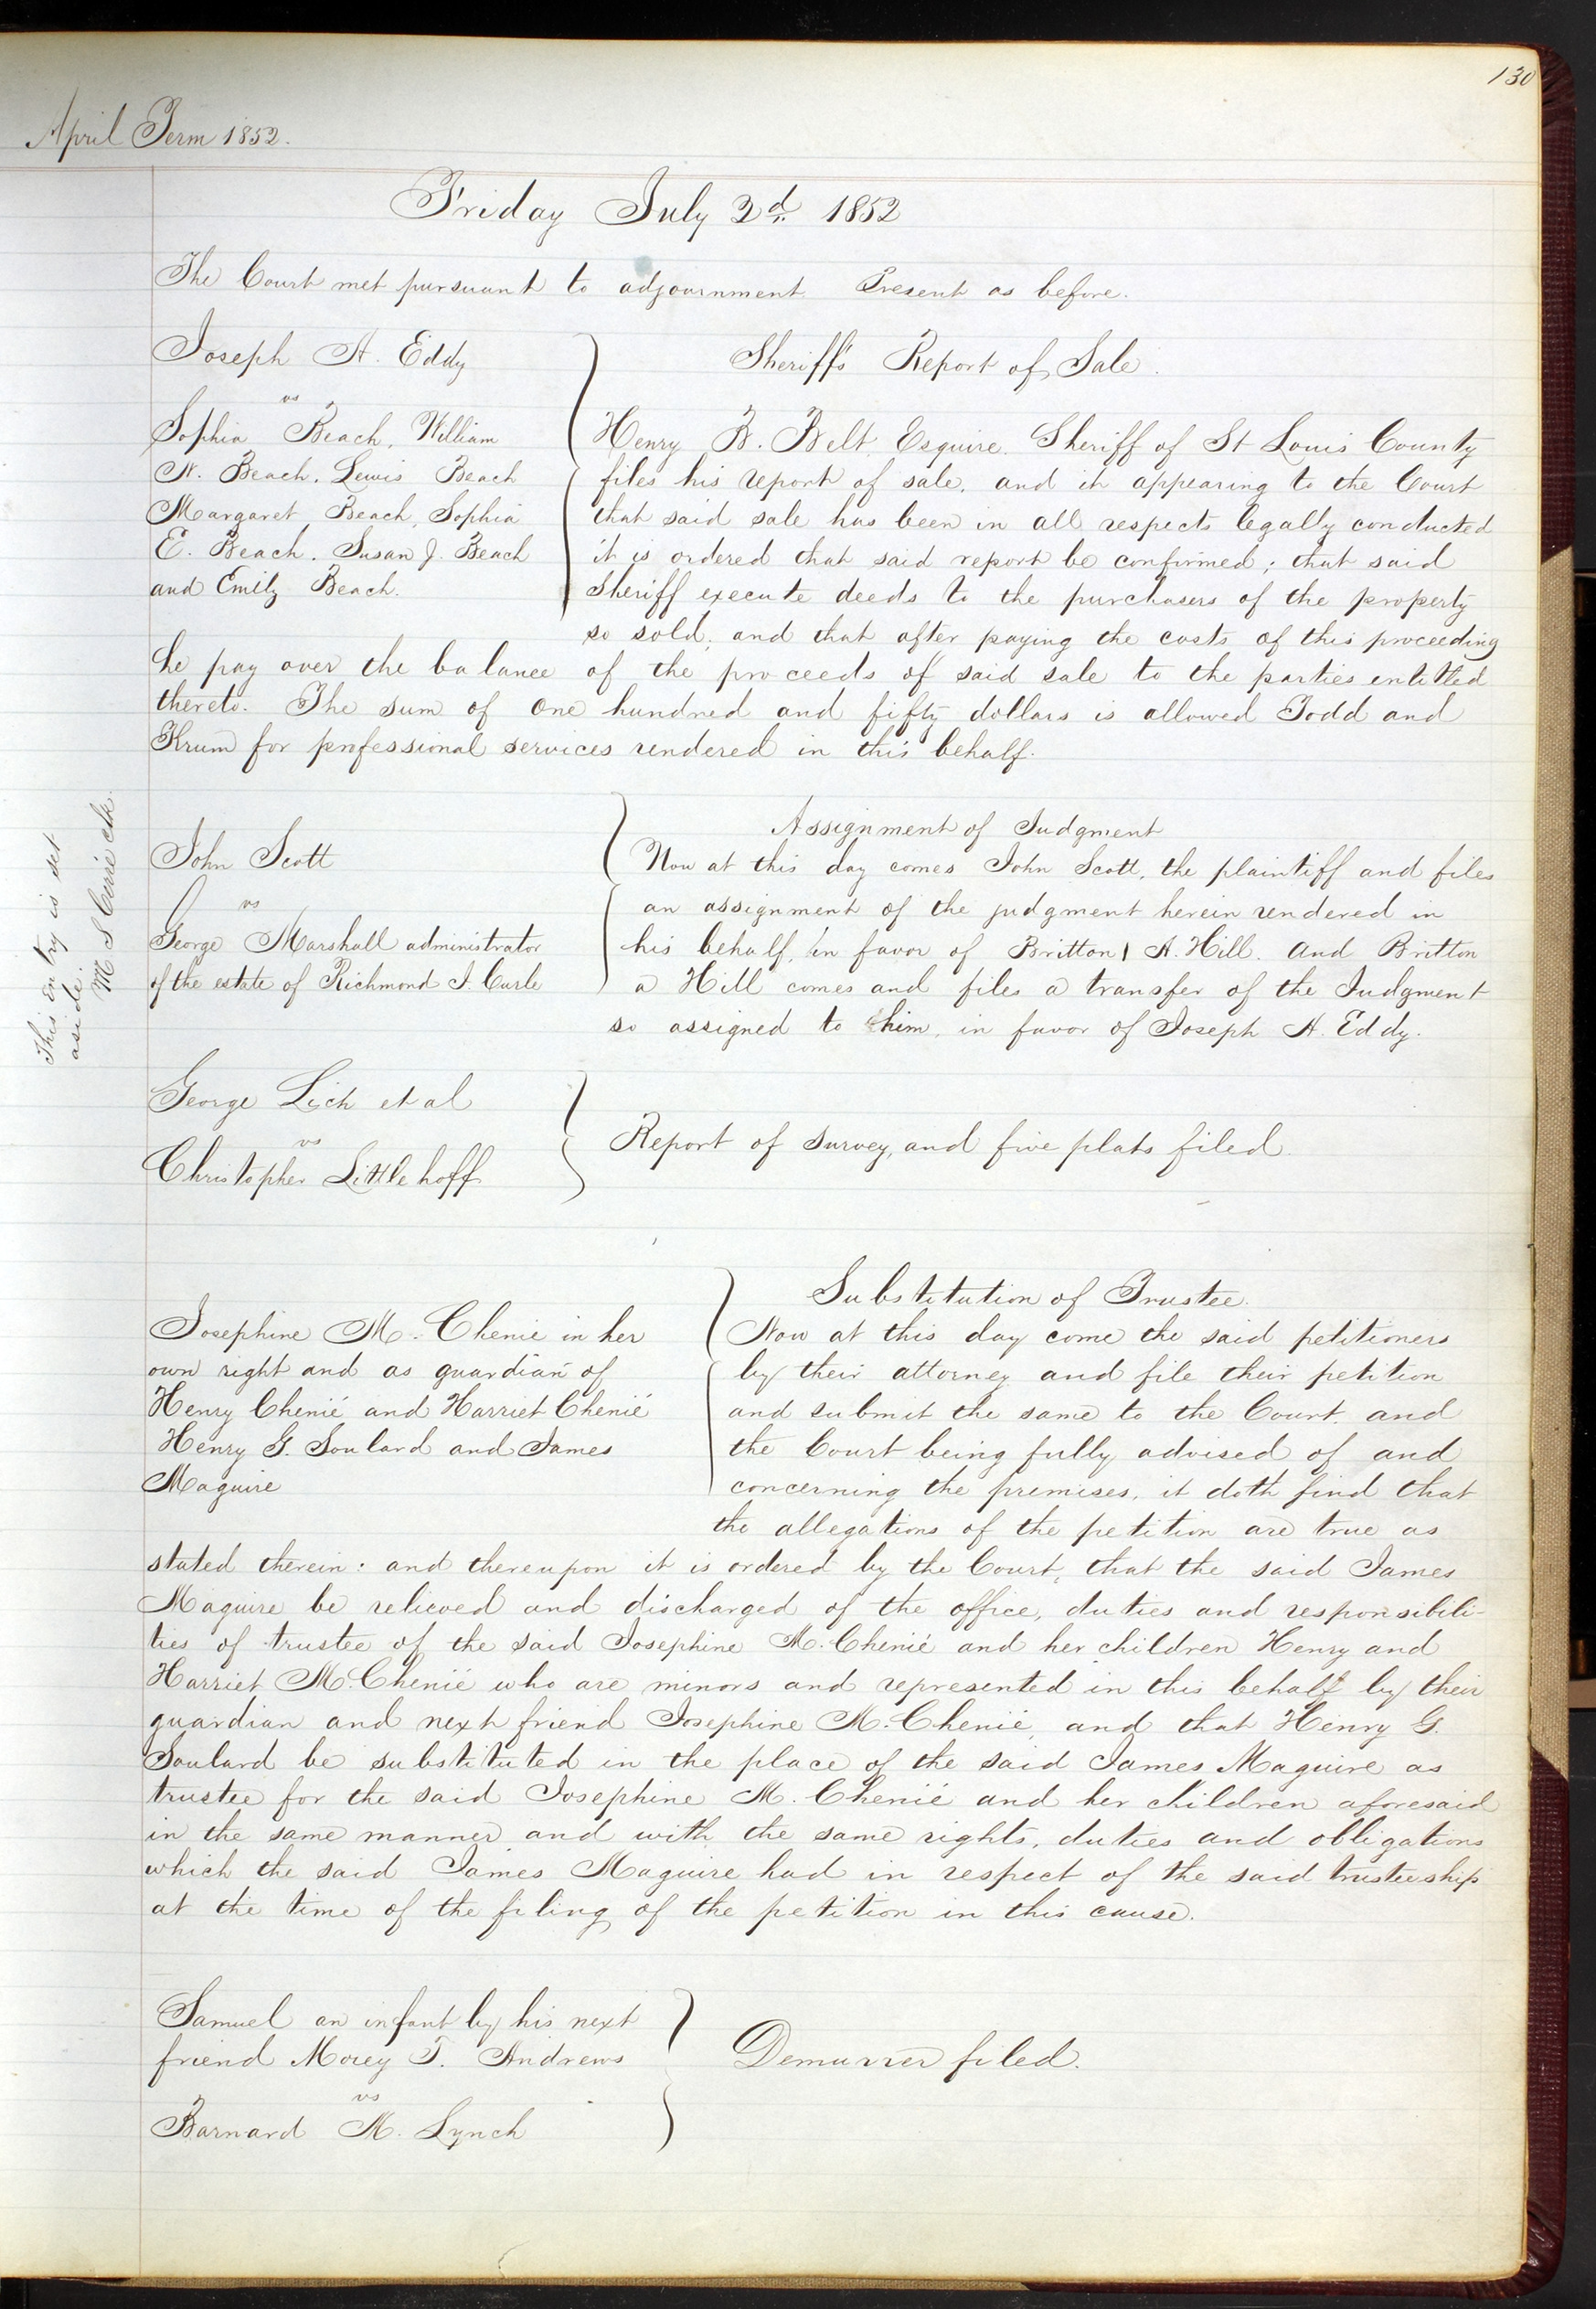 130
April Term 1852.
Friday July 2d. 1852
The Court met pursuant to adjournment Present as before.
Joseph A. Eddy
vs
Sophia Beach, William
N. Beach, Lewis Beach
Margaret Beach, Sophia
E. Beach, Susan J. Beach
and Emily Beach.
Sheriff's Report of Sale.
Henry B. Belt, Esquire, Sheriff of St Louis County
files his report of sale, and it appearing to the Court
that said sale has been in all respects legally conducted
it is ordered that said report be confirmed; that said
Sheriff execute deeds to the purchasers of the property
so sold; and that after paying the costs of this proceeding
he pay over the balance of the proceeds of said sale to the parties entitled
thereto. The sum of one hundred and fifty dollars is allowed Todd and
Krum for professional services rendered in this behalf.
This entry is set
aside.
M S clk.
John Scott
vs
George Marshall administrator
of the estate of Richmond J. Curle
Assignment of Judgment
Now at this day comes John Scott, the plaintiff and files
an assignment of the judgment herein rendered in
his behalf, in favor of Britton A. Hill. And Britton
a Hill comes and files a transfer of the Judgment
so assigned to him, in favor of Joseph A. Eddy.
George Lich et al
vs
Christopher Littlehoff
Report of Survey, and five plats filed.
Josephine M. Chenie in her
own right and as guardian of
Henry Chenié and Harriet Chenié
Henry G. Soulard and James
Maguire
Substitution of Trustee.
Now at this day come the said petitioners
by their attorney and file their petition
and submit the same to the Court, and
the Court being fully advised of and
concerning the premises, it doth find that
the allegations of the petition are true as
stated therein: and thereupon it is ordered by the Court, that the said James
Maguire be relieved and discharged of the office, duties and responsibili-
ties of trustee of the said Josephine M. Chenié and her children Henry and
Harriet M. Chenié who are minors and represented in this behalf by their
guardian and next friend Josephine M. Chenié, and that Henry G.
Soulard be substituted in the place of the said James Maguire as
trustee for the said Josephine M. Chenié and her children aforesaid
in the same manner and with the same rights, duties and obligations
which the said James Maguire had in respect of the said trusteeship
at the time of the filing of the petition in this cause.
Samuel an infant by his next
friend Morey T. Andrews
vs
Barnard M. Lynch
Demurrer filed.